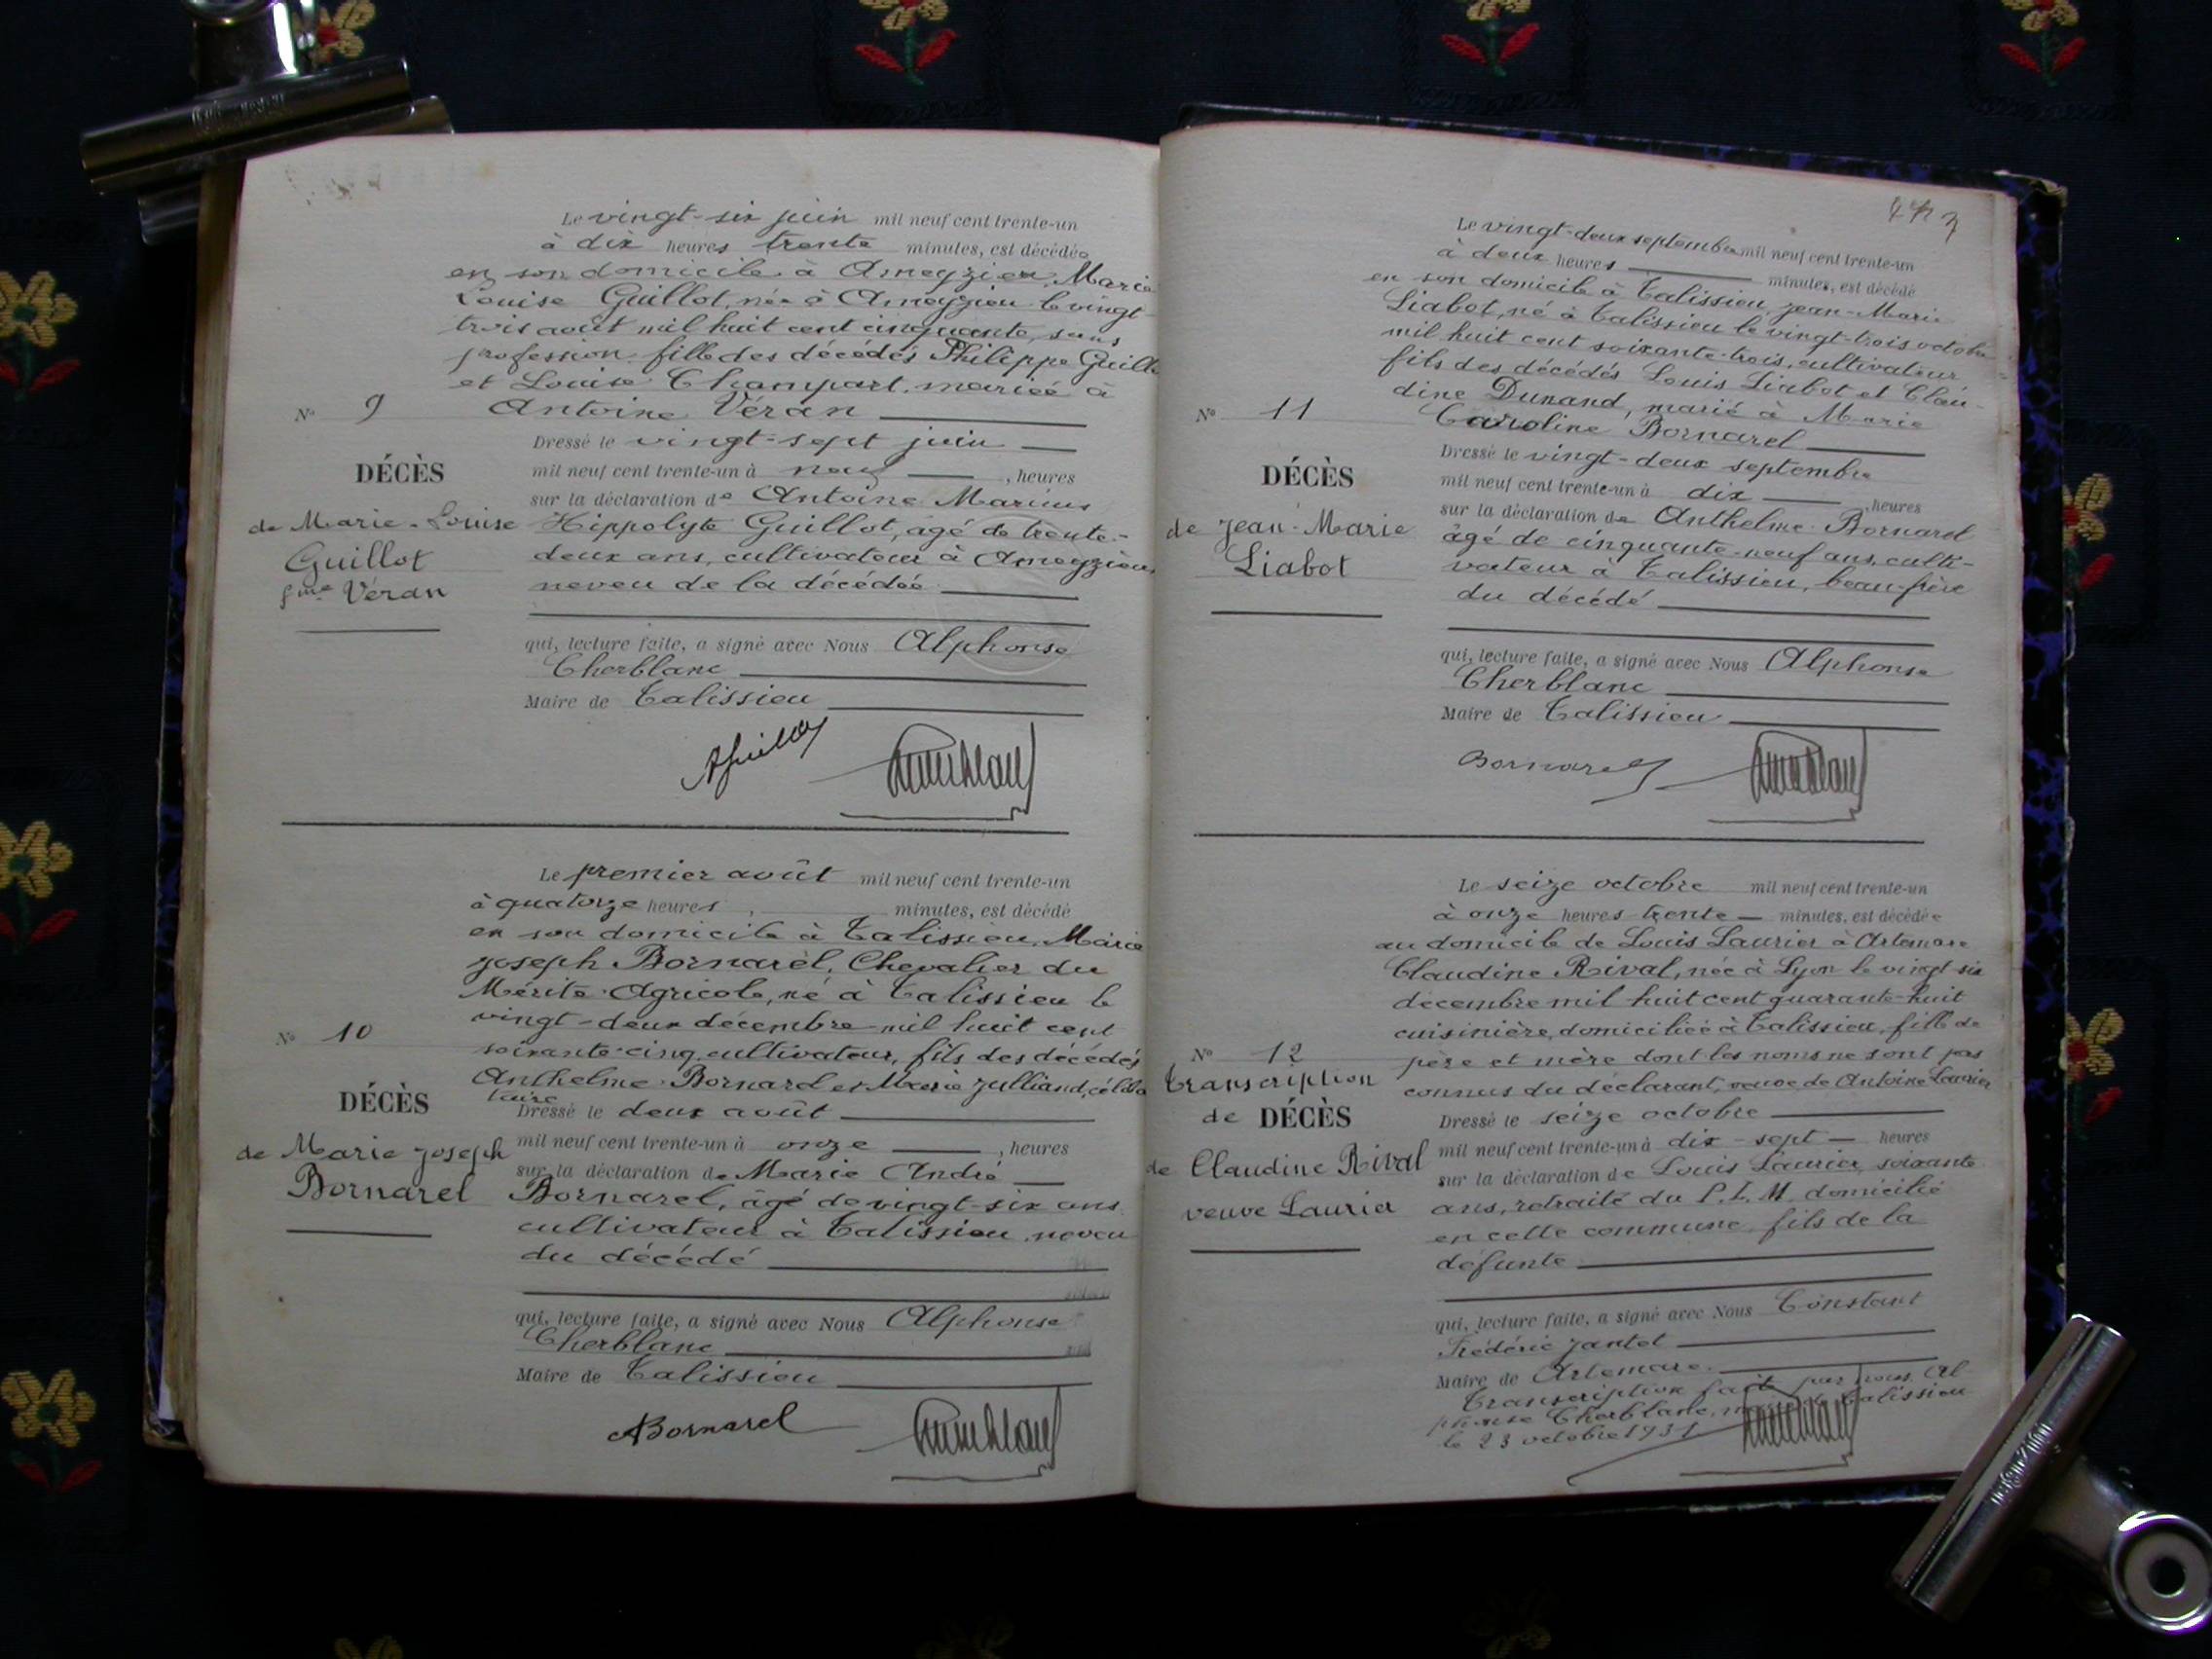 Le vingt-six juin mil neuf cent trente-un
à dix heures trente minutes, est décédée
en son domicile à Ameyzieu, Marie
Louise Guillot, née à Ameyzieu le vingt
trois août mil huit cent cinquante, sans
profession, fille des décédés Philippe Guillo
et Louise Champart, mariée à
Antoine Véran
N° 9
DÉCÈS
de Marie-Louise
Guillot
fme Véran
Dressé le vingt-sept juin
mil neuf cent trente-un à neuf , heures
sur la déclaration de Antoine Marius
Hippolyte Guillot, agé de trente-
deux ans, cultivateur à Ameyzieu,
neveu de la décédée
qui, lecture faite, a signé avec Nous Alphonse
Cherblanc
Maire de Talissieu
AGuillot
Le premier août mil neuf cent trente-un
à quatorze heures , minutes, est décédé
en son domicile à Talissieu, Marie
Joseph Bornarel, Chevalier du
Mérite Agricole, né à Talissieu le
vingt-deux décembre mil huit cent
soixante-cinq, cultivateur, fils des décédés
Anthelme Bornarel et Marie Julliand, céliba
taire
N° 10
DÉCÈS
de Marie Joseph
Bornarel
Dressé le deux août
mil neuf cent trente-un à onze , heures
sur la déclaration de Marie André
Bornarel, âgé de vingt-six ans
cultivateur à Talissieu, neveu
du décédé
qui, lecture faite, a signé avec Nous Alphonse
Cherblanc
Maire de Talissieu
ABornarel
Le vingt-deux septembre mil neuf cent trente-un
à deux heures minutes, est décédé
en son domicile à Talissieu, Jean-Marie
Liabot, né à Talissieu le vingt-trois octobre
mil huit cent soixante-trois, cultivateur
fils des décédés Louis Liabot et Clau-
dine Dunand, marié à Marie
Caroline Bornarel
N° 11
DÉCÈS
de Jean-Marie
Liabot
Dressé le vingt-deux septembre
mil neuf cent trente-un à dix , heures
sur la déclaration de Anthelme Bornarel
âgé de cinquante-neuf ans, culti-
vateur à Talissieu, beau-frère
du décédé
qui, lecture faite, a signé avec Nous Alphonse
Cherblanc
Maire de Talissieu
Bornarel
Le seize octobre mil neuf cent trente-un
à onze heures trente minutes, est décédée
au domicile de Louis Laurier à Artemare
Claudine Rival, née à Lyon le vingt-six
décembre mil huit cent quarante-huit
cuisinière, domiciliée à Talissieu, fille de
père et mère dont les noms ne sont pas
connus du déclarant, veuve de Antoine Laurier
N° 12
Transcription
de DÉCÈS
de Claudine Rival
veuve Laurier
Dressé le seize octobre
mil neuf cent trente-un à dix-sept heures
sur la déclaration de Louis Laurier, soixante
ans, retraité du P. L. M. domicilié
en cette commune, fils de la
défunte
qui, lecture faite, a signé avec Nous Constant
Frédéric Jantet
Maire de Artemare.
Transcription faite par nous Al
phonse Cherblanc, Talissieu
le 23 octobre 1931